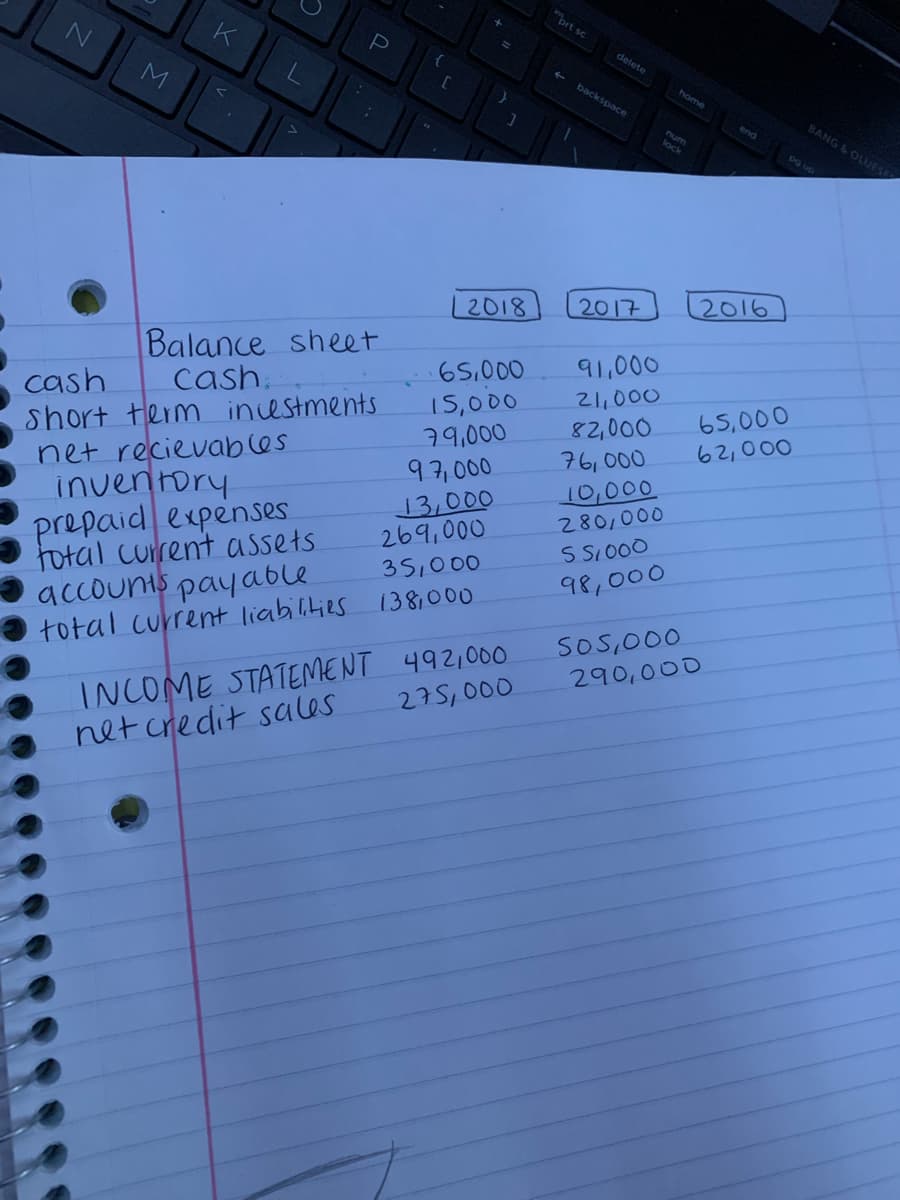 N M K L P
{ [ } ] + =
prt sc delete home end pg up
backspace num lock
BANG & OLUFSE
2018 2017 2016
Balance sheet
cash cash 65,000 91,000
short term investments 15,000 21,000
net recievables 79,000 82,000 65,000
inventory 97,000 76,000 62,000
prepaid expenses 13,000 10,000
total current assets 269,000 280,000
accounts payable 35,000 55,000
total current liabilities 138,000 98,000
INCOME STATEMENT 492,000 505,000
net credit sales 275,000 290,000